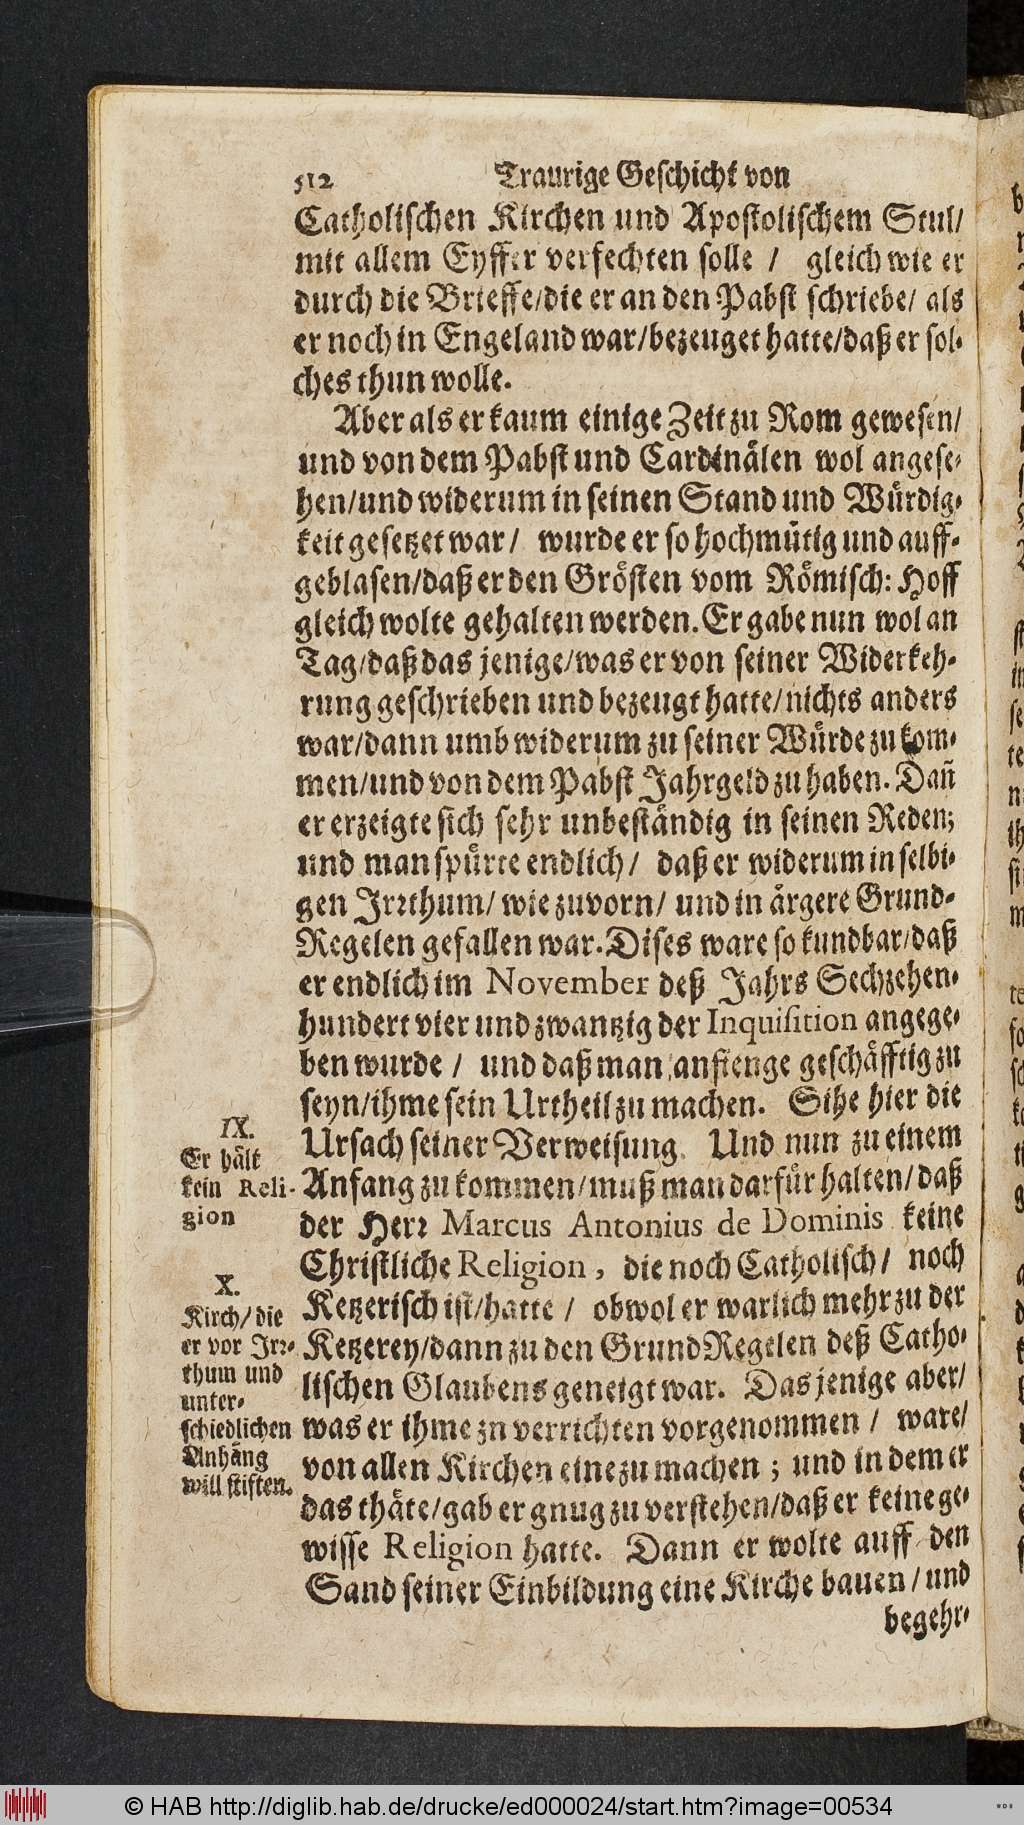 512 Traurige Geschicht von
Catholischen Kirchen und Apostolischem Stul/
mit allem Eyffer verfechten solle / gleich wie er
durch die Brieffe/die er an den Pabst schriebe/ als
er noch in Engeland war/bezeuget hatte/daß er sol-
ches thun wolle.
Aber als er kaum einige Zeit zu Rom gewesen/
und von dem Pabst und Cardinälen wol angese-
hen/und widerum in seinen Stand und Würdig-
keit gesetzet war/ wurde er so hochmütig und auff-
geblasen/daß er den Grösten vom Römisch: Hoff
gleich wolte gehalten werden. Er gabe nun wol an
Tag/daß das jenige/was er von seiner Widerkeh-
rung geschrieben und bezeugt hatte/nichts anders
war/dann umb widerum zu seiner Würde zu kom-
men/und von dem Pabst Jahrgeld zu haben. Dañ
er erzeigte sich sehr unbeständig in seinen Reden;
und man spürte endlich/ daß er widerum in selbi-
gen Irꝛthum/ wie zuvorn/ und in ärgere Grund-
Regelen gefallen war. Dises ware so kundbar/daß
er endlich im November deß Jahrs Sechzehen-
hundert vier und zwantzig der Inquisition angege-
ben wurde / und daß man anfienge geschäfftig zu
seyn/ihme sein Urtheil zu machen. Sihe hier die
Ursach seiner Verweisung. Und nun zu einem
Anfang zu kommen/muß man darfür halten/daß
der Herꝛ Marcus Antonius de Dominis keine
Christliche Religion, die noch Catholisch/ noch
Ketzerisch ist/hatte / obwol er warlich mehr zu der
Ketzerey/dann zu den GrundRegelen deß Catho-
lischen Glaubens geneigt war. Das jenige aber/
was er ihme zn verrichten vorgenommen / ware/
von allen Kirchen eine zu machen ; und in dem er
das thäte/gab er gnug zu verstehen/daß er keine ge-
wisse Religion hatte. Dann er wolte auff den
Sand seiner Einbildung eine Kirche bauen/und
begehr-
IX.
Er hält
kein Reli-
gion
X.
Kirch/die
er vor Irꝛ-
thum und
unter-
schiedlichen
Anhäng
will stiften.
© HAB http://diglib.hab.de/drucke/ed000024/start.htm?image=00534